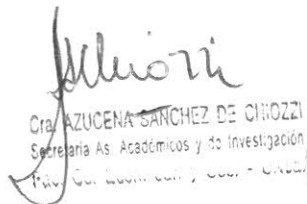 Chiozzi
Cra. AZUCENA SANCHEZ DE CHIOZZI
Secretaria As. Académicos y de Investigación